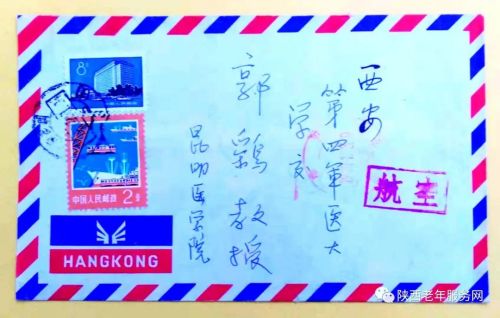 西安
第四軍医大
学
郭鷂教授
昆明医学院
航空
8分
中国人民邮政 2分
HANGKONG
陕西老年服务网